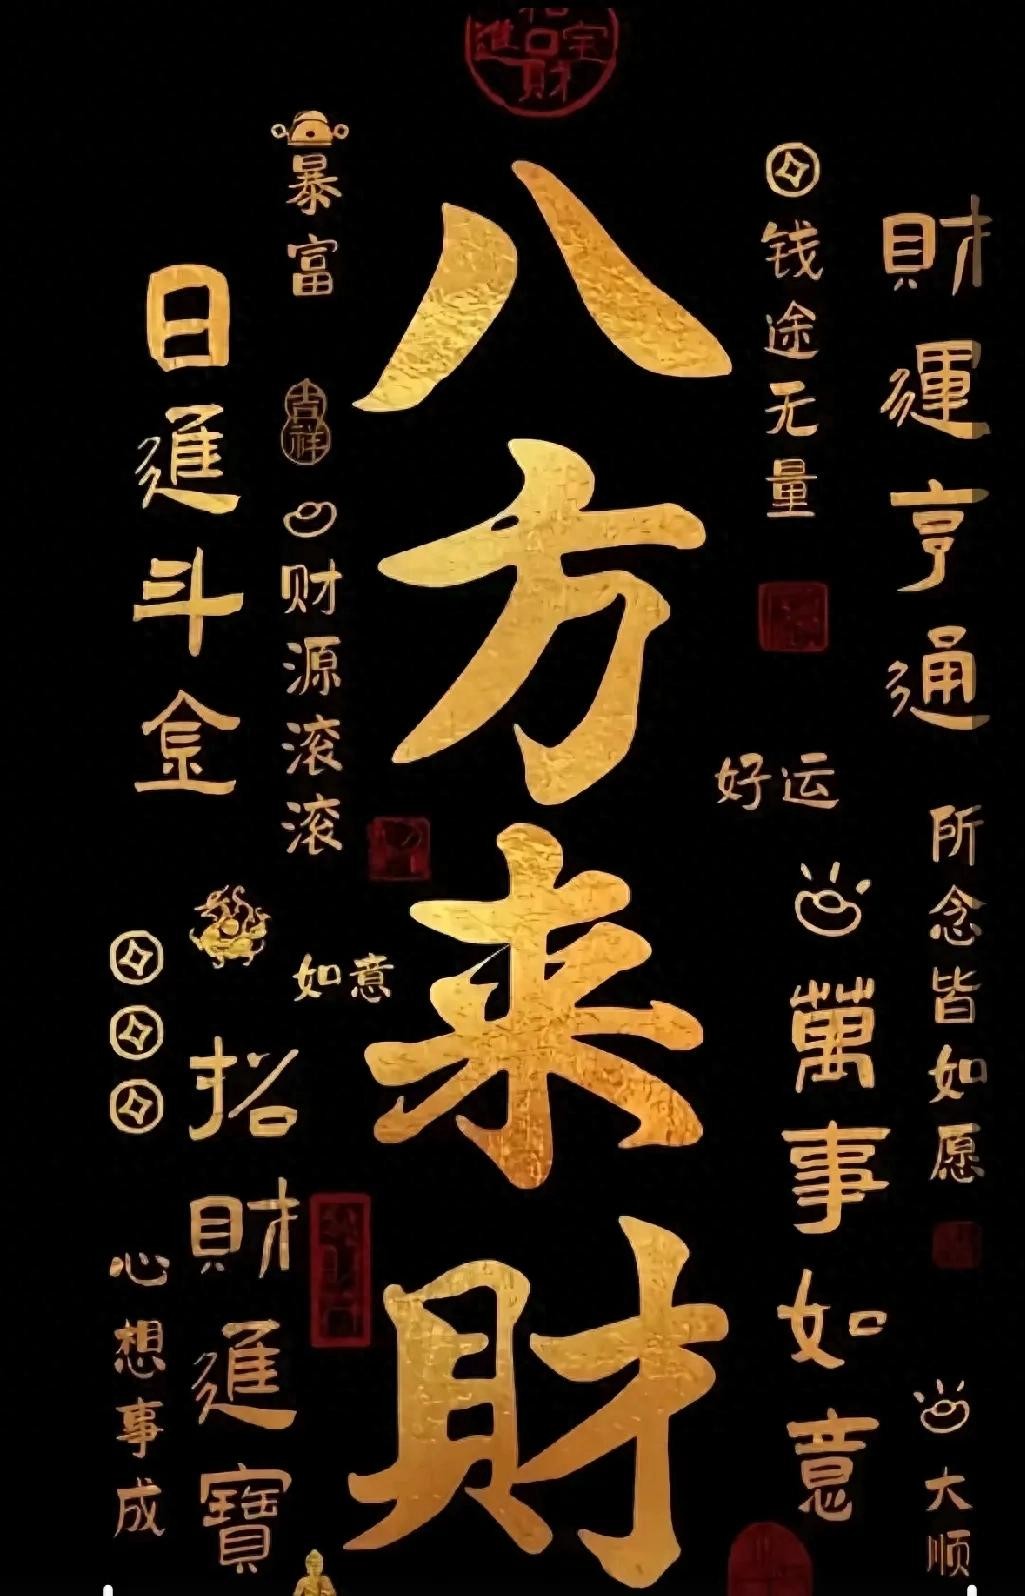 財運亨通
所念皆如愿
大顺
钱途无量
好运
萬事如意
八方来財
暴富
吉祥
财源滚滚
如意
日進斗金
招財進寶
心想事成